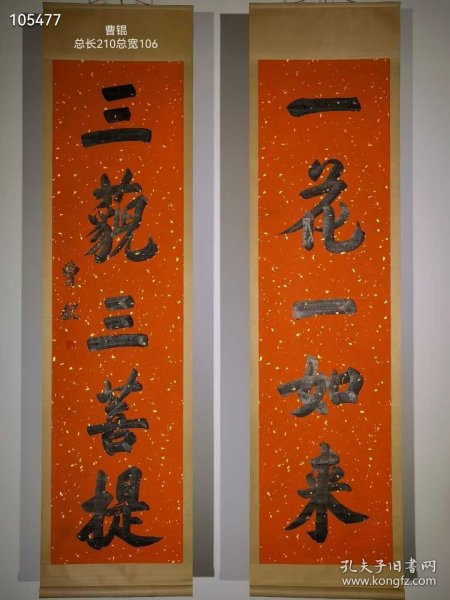 105477
曹锟
总长210总宽106
一花一如来
三藐三菩提
曹锟
孔夫子旧书网
www.kongfz.com